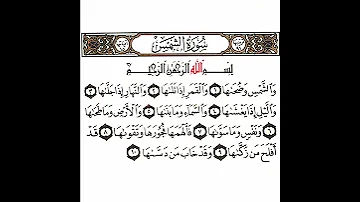 سُورَةُ الشَّمْسِ
بِسْمِ اللَّهِ الرَّحْمَٰنِ الرَّحِيمِ
وَالشَّمْسِ وَضُحَىٰهَا ١ وَالْقَمَرِ إِذَا تَلَىٰهَا ٢ وَالنَّهَارِ إِذَا جَلَّىٰهَا ٣
وَالَّيْلِ إِذَا يَغْشَىٰهَا ٤ وَالسَّمَاءِ وَمَا بَنَىٰهَا ٥ وَالْأَرْضِ وَمَا طَحَىٰهَا
٦ وَنَفْسٍ وَمَا سَوَّىٰهَا ٧ فَأَلْهَمَهَا فُجُورَهَا وَتَقْوَىٰهَا ٨ قَدْ
أَفْلَحَ مَن زَكَّىٰهَا ٩ وَقَدْ خَابَ مَن دَسَّىٰهَا ١٠